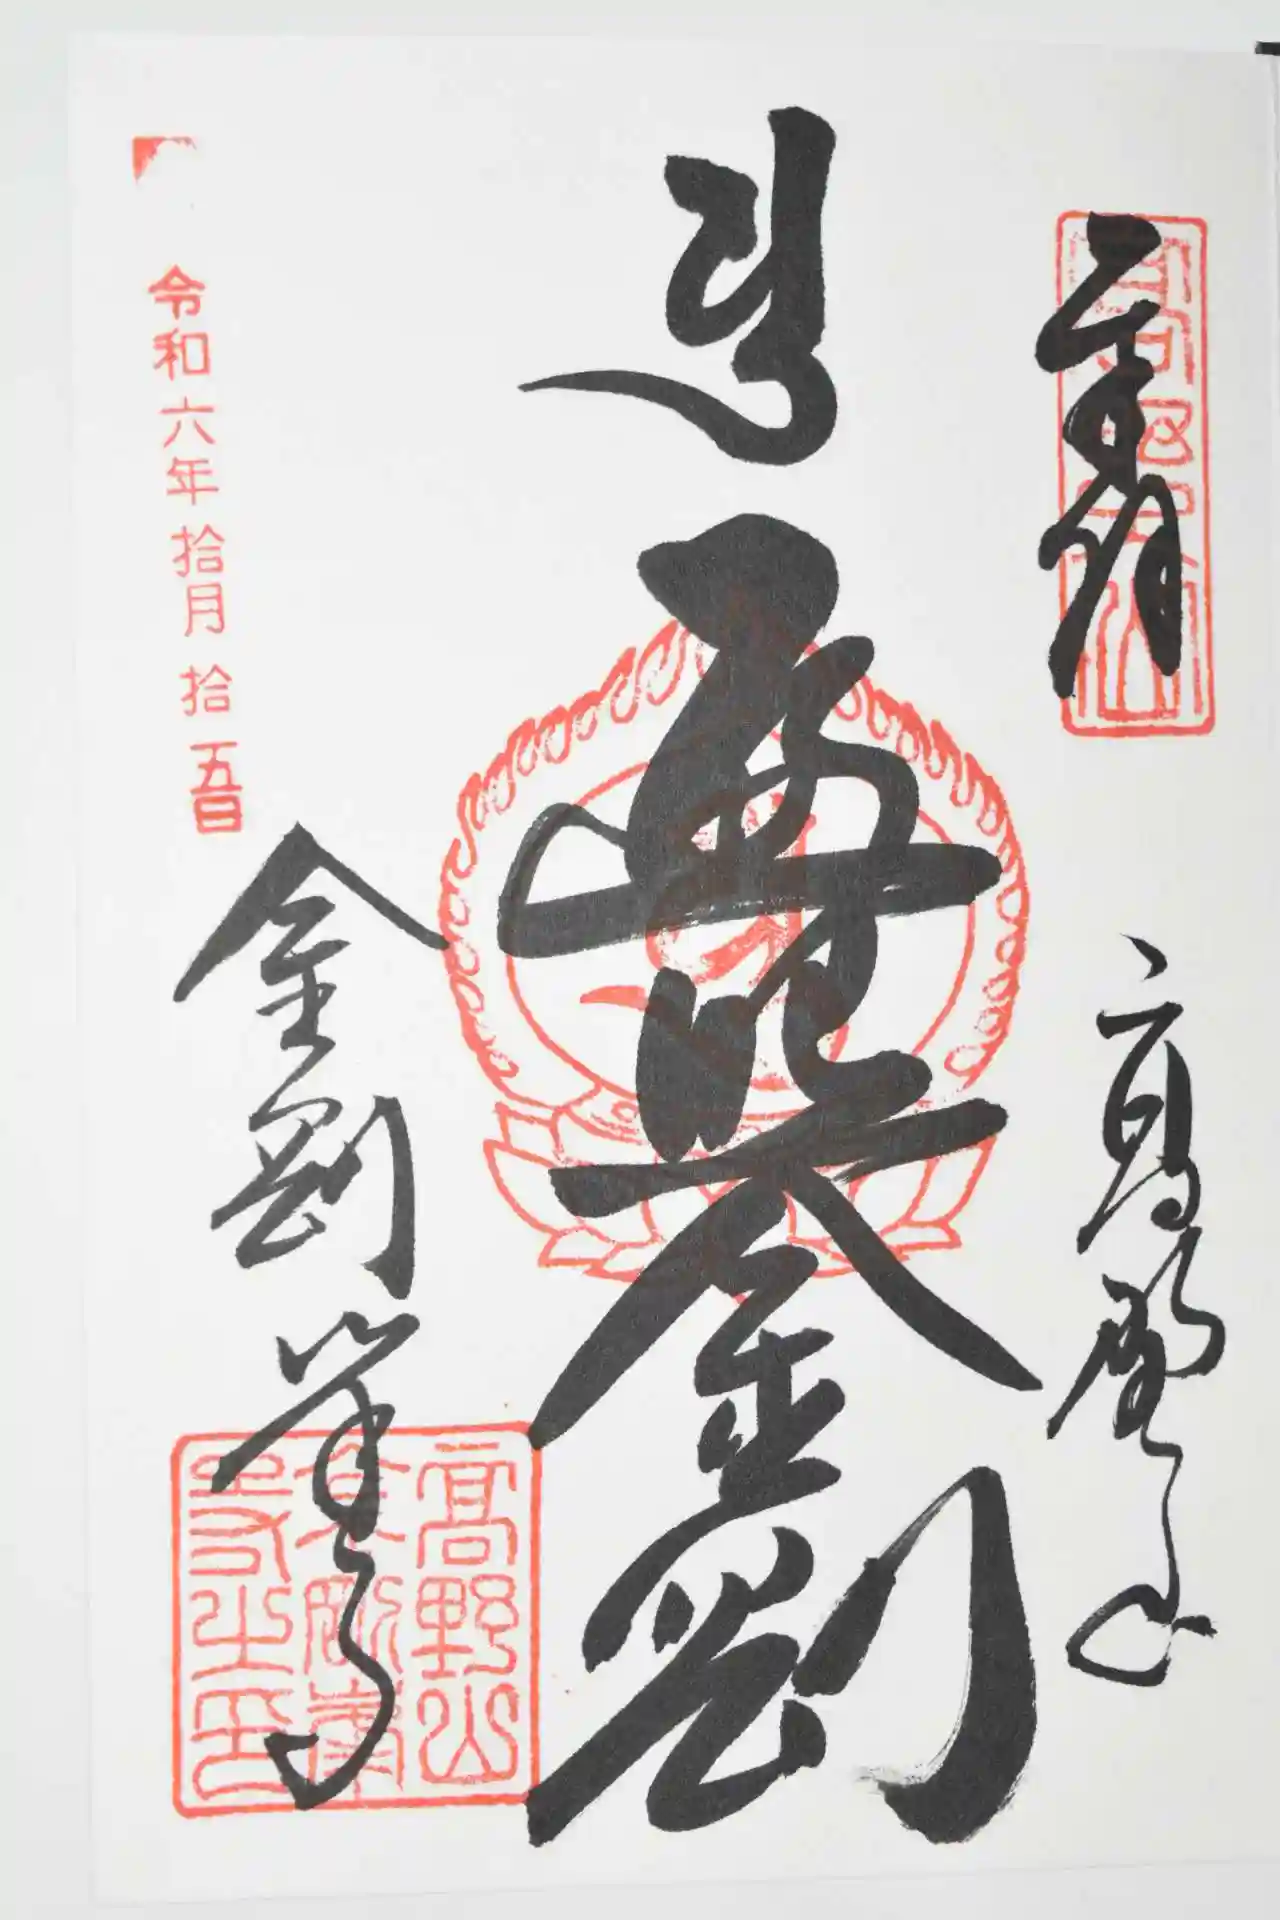 奉拝
高野山
遍照金剛
金剛峯寺
令和六年拾月拾五日
高野山
金剛峯
寺之印